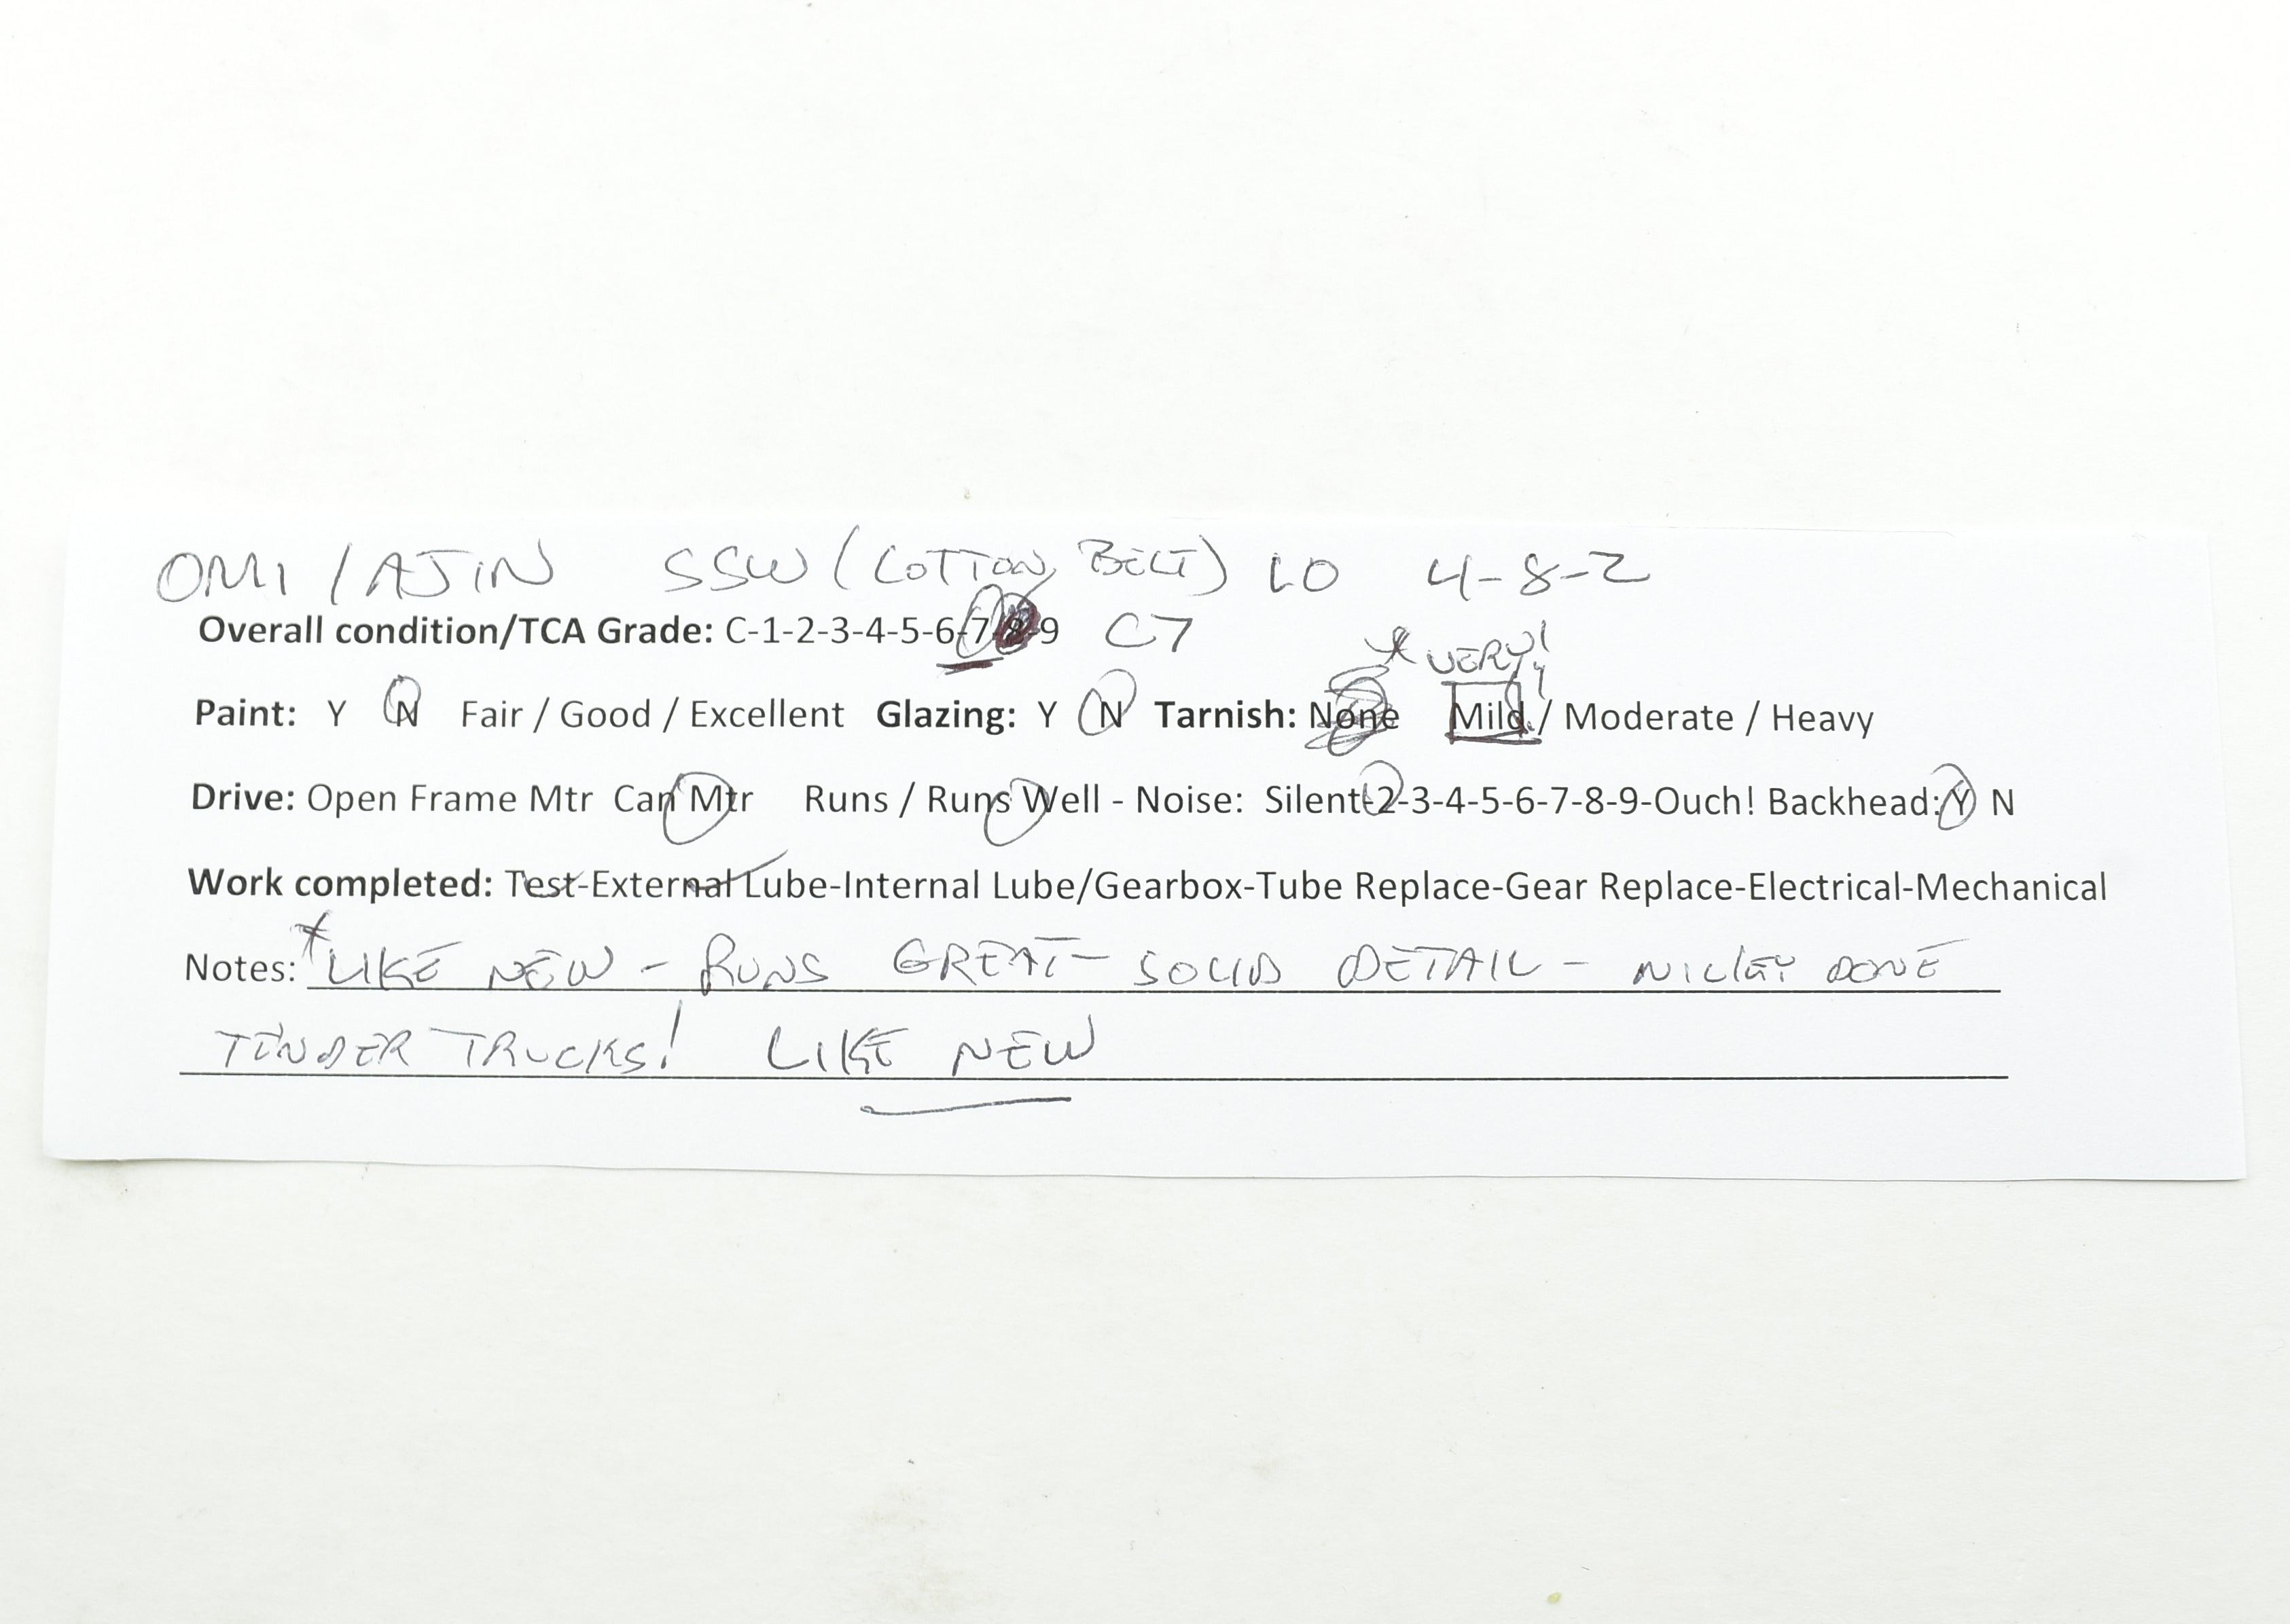 OMI / AJIN SSW (COTTON BELT) LO 4-8-2
Overall condition/TCA Grade: C-1-2-3-4-5-6-7-8-9 C7
* VERY!
Paint: Y N Fair / Good / Excellent Glazing: Y N Tarnish: None Mild / Moderate / Heavy
Drive: Open Frame Mtr Can Mtr Runs / Runs Well - Noise: Silent-2-3-4-5-6-7-8-9-Ouch! Backhead: Y N
Work completed: Test-External Lube-Internal Lube/Gearbox-Tube Replace-Gear Replace-Electrical-Mechanical
Notes: * LIKE NEW - RUNS GREAT - SOLID DETAIL - NICLEY DONE
TENDER TRUCKS! LIKE NEW